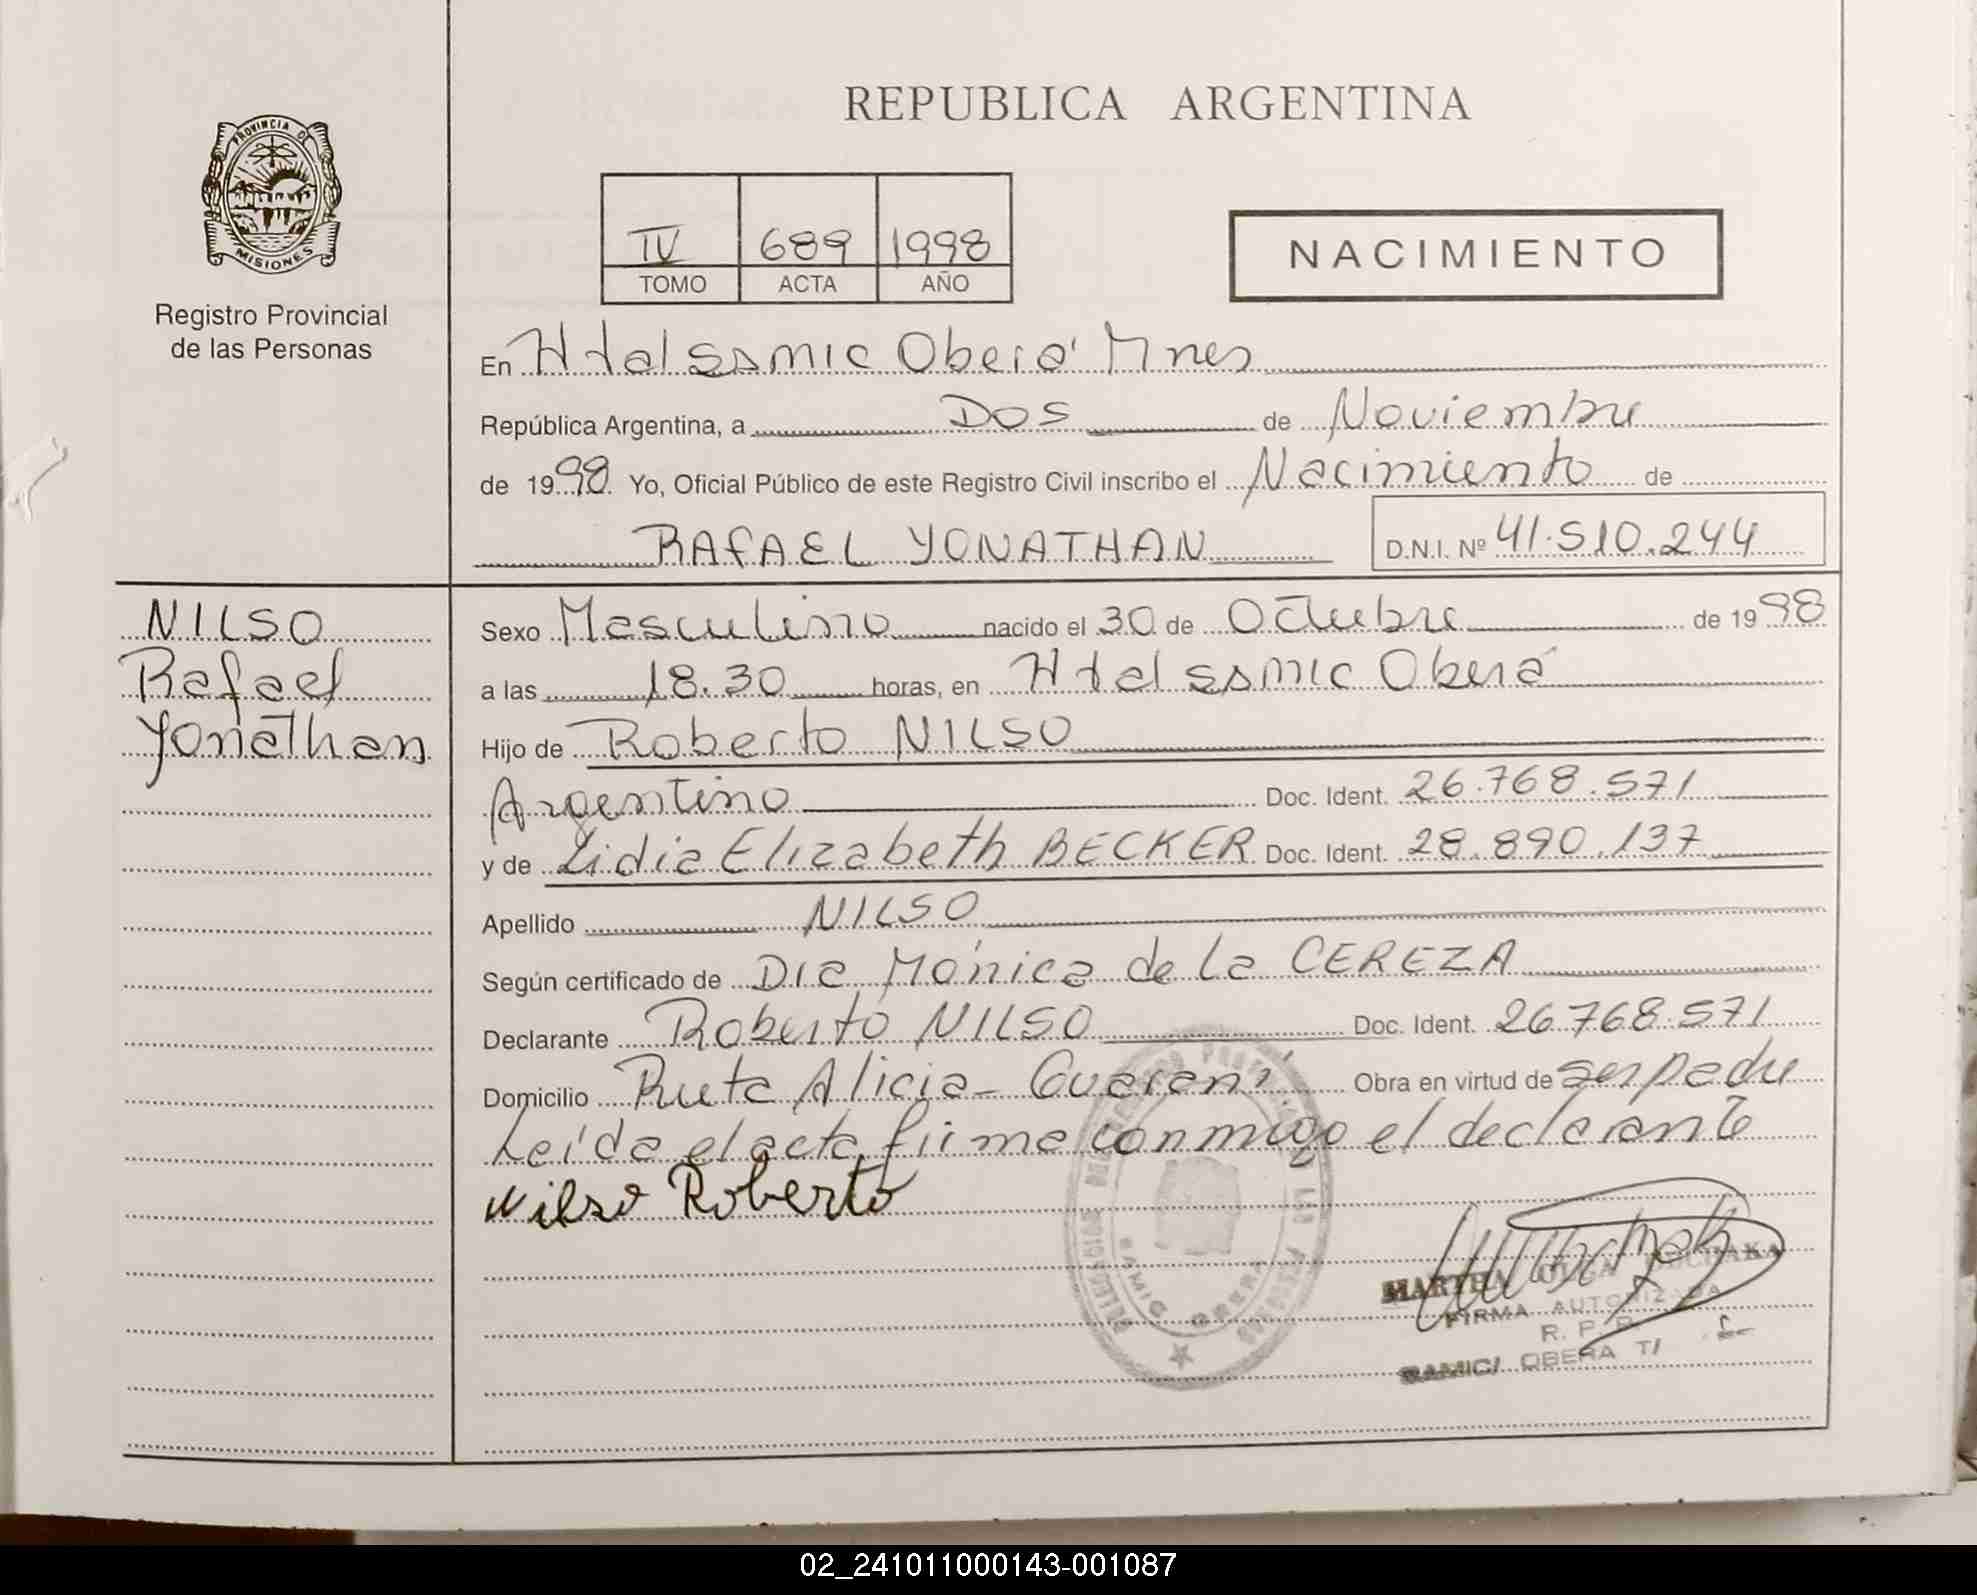 REPUBLICA ARGENTINA
PROVINCIA DE
MISIONES
Registro Provincial
de las Personas
IV 689 1998
TOMO ACTA AÑO
NACIMIENTO
En Htal SSMIC Oberá Mnes
República Argentina, a DOS de Noviembre
de 1998 Yo, Oficial Público de este Registro Civil inscribo el Nacimiento de
RAFAEL YONATHAN D.N.I. Nº 41.510.244
NILSO
Rafael
Yonathan
Sexo Masculino nacido el 30 de Octubre de 1998
a las 18.30 horas, en Htal SSMIC Oberá
Hijo de Roberto NILSO
Argentino Doc. Ident. 26.768.571
y de Lidia Elizabeth BECKER Doc. Ident. 28.890.137
Apellido NILSO
Según certificado de Dra Mónica de la CEREZA
Declarante Roberto NILSO Doc. Ident. 26.768.571
Domicilio Ruta Alicia - Guaraní Obra en virtud de ser padre
Leída el acta firma conmigo el declarante
Nilso Roberto
MARTHA OLGA
FIRMA AUTORIZADA
R. P. P.
SAMIC/ OBERA
SAMIC OBERA
02_241011000143-001087